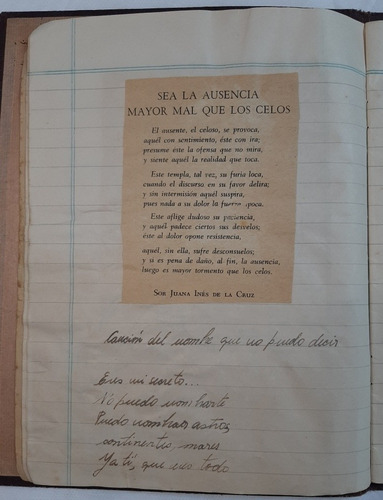 SEA LA AUSENCIA
MAYOR MAL QUE LOS CELOS
El ausente, el celoso, se provoca,
aquél con sentimiento, éste con ira;
presume éste la ofensa que no mira,
y siente aquél la realidad que toca.
Este templa, tal vez, su furia loca,
cuando el discurso en su favor delira;
y sin intermisión aquél suspira,
pues nada a su dolor la fuerza apoca.
Este aflige dudoso su paciencia,
y aquél padece ciertos sus desvelos;
éste al dolor opone resistencia,
aquél, sin ella, sufre desconsuelos;
y si es pena de daño, al fin, la ausencia,
luego es mayor tormento que los celos.
SOR JUANA INÉS DE LA CRUZ
Canción del nombre que no puedo decir
Eres mi secreto...
No puedo nombrarte
Puedo nombrar astros,
continentes, mares
Y a ti, que eres todo